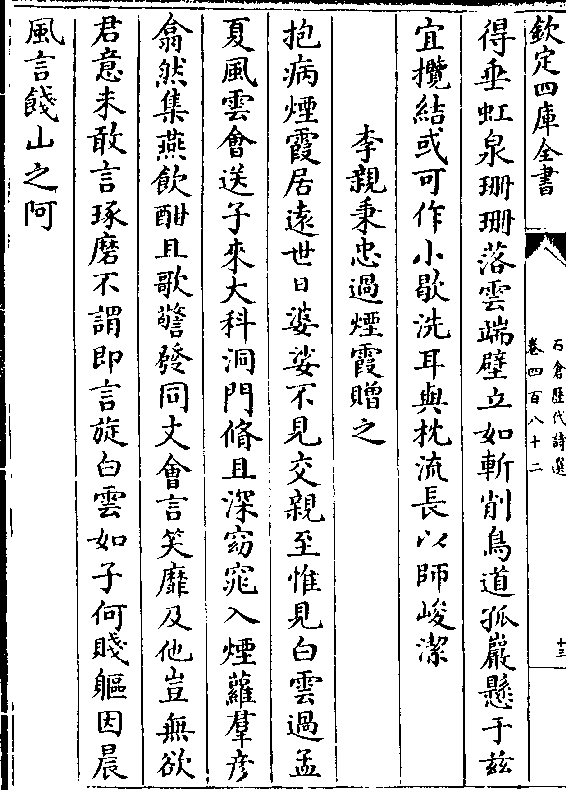 欽定四庫全書
石倉歷代詩選
卷四百八十二
十三
得垂虹泉珊珊落雲端壁立如斬削鳥道孤巖懸于兹
宜攬結或可作小歇洗耳與枕流長以師峻潔
李親秉忠過煙霞贈之
抱病煙霞居遠世日婆娑不見交親至惟見白雲過孟
夏風雲會送子來大科洞門脩且深窈窕入煙蘿羣彦
翕然集燕飲酣且歌警發同丈會言笑靡及他豈無欲
君意未敢言琢磨不謂即言旋白雲如子何賤軀因晨
風言餞山之阿